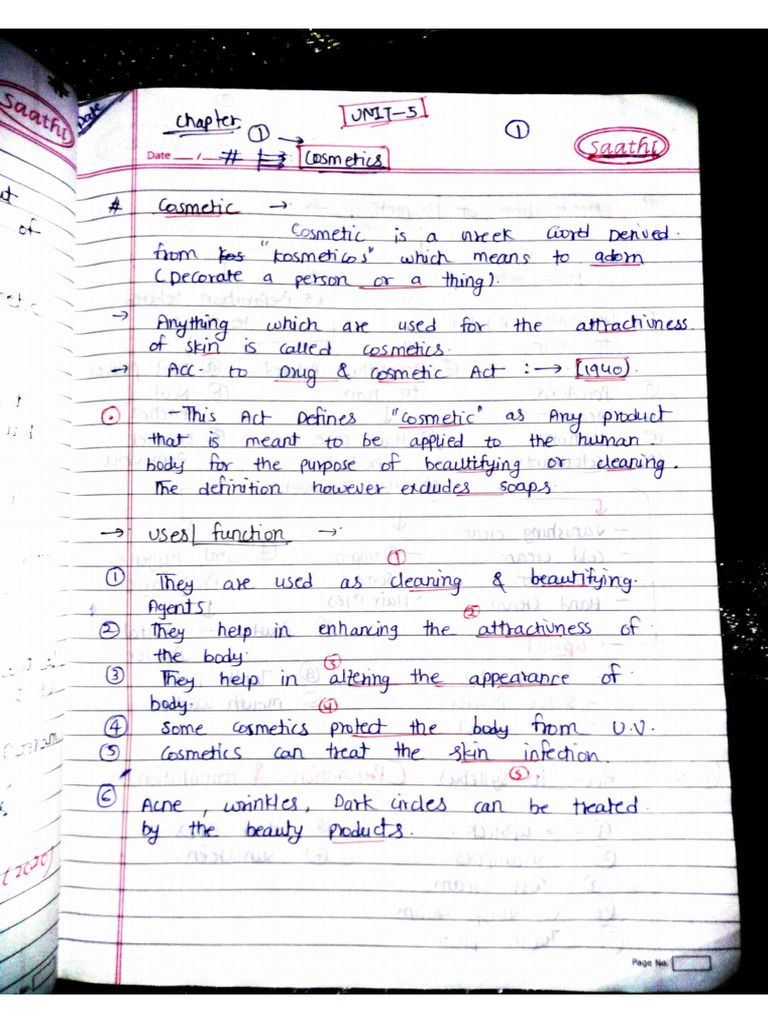 Saathi
Date
UNIT-5
Chapter ① →
①
Saathi
Date __/__ # Cosmetics
# Cosmetic →
Cosmetic is a Ureek Word Derived
from kos "kosmeticos" which means to adorn
(Decorate a person or a thing).
→ Anything which are used for the attractivness
of skin is called cosmetics.
→ Acc. to Drug & Cosmetic Act :→ [1940]
- This Act Defines "Cosmetic" as Any product
that is meant to be applied to the human
body for the purpose of beautifying or cleaning.
The definition however excludes soaps
→ uses/ function →
①
① They are used as cleaning & beautifying.
Agents ②
② They help in enhancing the attractivness of
the body. ③
③ They help in altering the appearance of
body. ④
④ Some cosmetics protect the body from U.V.
⑤ Cosmetics can treat the skin infection.
⑤
⑥ Acne, wrinkles, Dark circles can be treated
by the beauty products.
of
(2020)
Page No.